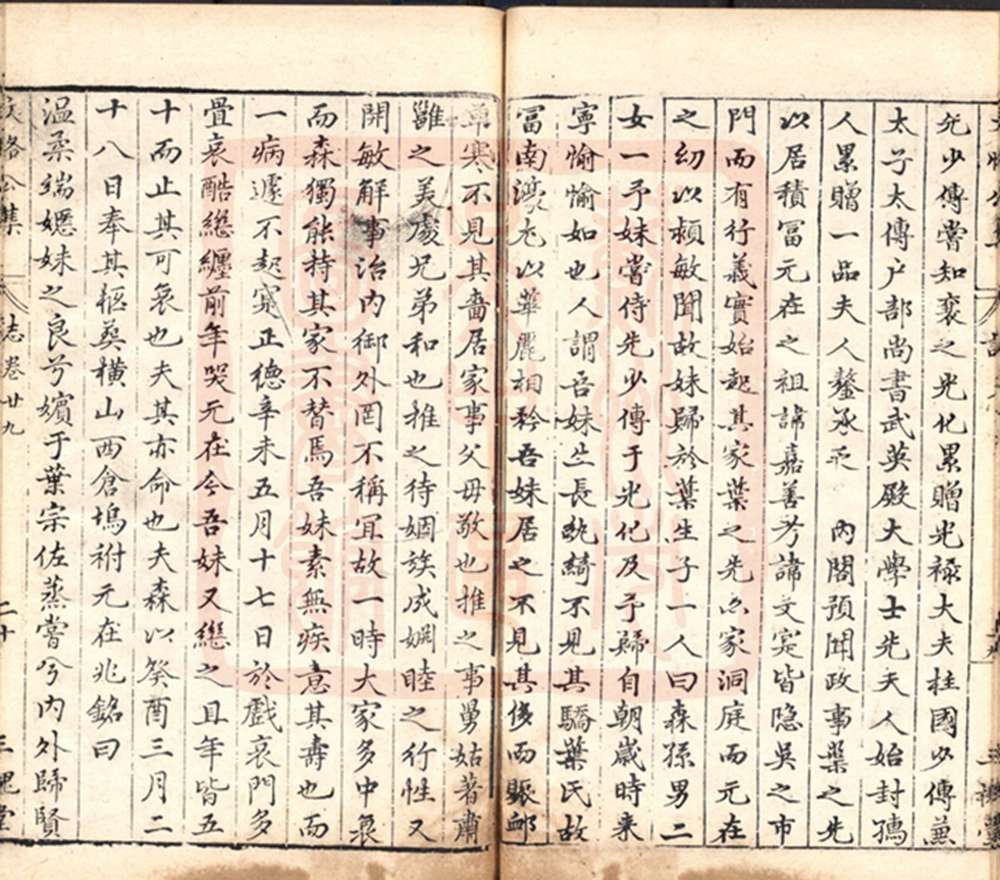 光少傳嘗知襄之光化累贈光祿大夫柱國少傳兼
太子太傳户部尚書武英殿大學士先夫人始封孺
人累贈一品夫人鏊承乏 內閣預聞政事葉之先
以居積冨元在之祖諱嘉善考諱文寔皆隐吳之市
門而有行義實始起其家葉之先亦家洞庭而元在
之幼以頴敏聞故妹歸於葉生子一人曰森孫男二
女一予妹嘗侍先少傳于光化及予歸自朝歲時來
寧愉愉如也人謂吾妹生長紈綺不見其驕葉氏故
冨南濠尤以華麗相矜吾妹居之不見其侈而賑邮
單寒不見其嗇居家事父母敬也推之事舅姑著肅
雝之美處兄弟和也推之待婣族成婣睦之行性又
開敏解事治內御外罔不稱冝故一時大家多中衰
而森獨能持其家不替焉吾妹素無疾意其壽也而
一病遽不起寔正德辛未五月十七日於戲哀門多
疊哀酷繼纏前年哭元在今吾妹又繼之且年皆五
十而止其可哀也夫其亦命也夫森以癸酉三月二
十八日奉其柩葬橫山西倉塢祔元在兆銘曰
温柔端嫕妹之良兮嬪于葉宗佐蒸嘗兮內外歸賢
文恪公集 志卷廿九 二十 三槐堂